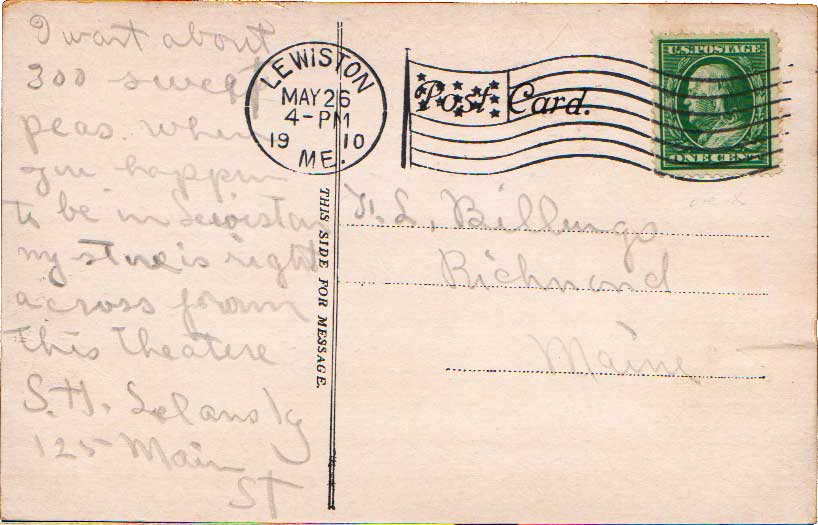 I want about
300 sweet
peas. when
you happen
to be in Lewiston
my store is right
across from
this Theatere
S. H.
125 Main
ST
LEWISTON
MAY 26
4-PM
19 10
ME.
Post Card.
U.S. POSTAGE
ONE CENT
THIS SIDE FOR MESSAGE.
F. L. Billings
Richmond
Maine